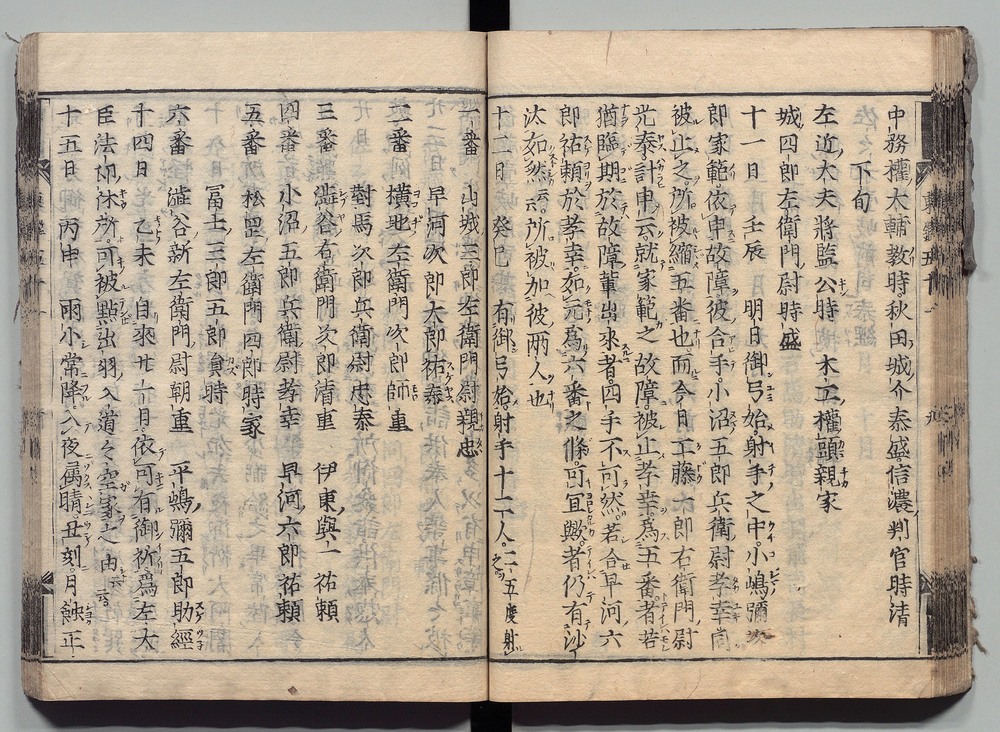 中務權太輔教時秋田城介泰盛信濃判官時清
下旬
左近大夫將監公時 木工權頭親家
城四郎左衛門尉時盛
十一日 壬辰 明日御弓始射手之中小嶋彌次
郎家範依申故障彼合手小沼五郎兵衛尉孝幸同
被止之所被縮五番也而今日工藤六郎右衛門尉
光泰計申云就家範之故障被止孝幸爲五番者若
猶臨期於故障輩出來者四手不可然若合早河六
郎祐頼於孝幸如元爲六番之條可宜歟者仍有沙
汰如然云云所被加彼兩人也
十二日 癸巳 有御弓始射手十二人二五度射之
一番 山城三郎左衛門尉親忠
早河次郎太郎祐泰
二番 横地左衛門次郎師重
對馬次郎兵衛尉忠泰
三番 澁谷右衛門次郎清重 伊東與一 祐頼
四番 小沼五郎兵衛尉孝幸 早河六郎祐頼
五番 松罡左衛門四郎時家
冨士三郎五郎員時
六番 澁谷新左衛門尉朝重 平嶋彌五郎助經
十四日 乙未 自來廿五日依可有御祈爲左大
臣法印休所可被點出羽入道々空家之由云云
十五日 丙申 雨小常降入夜属晴丑刻月蝕正